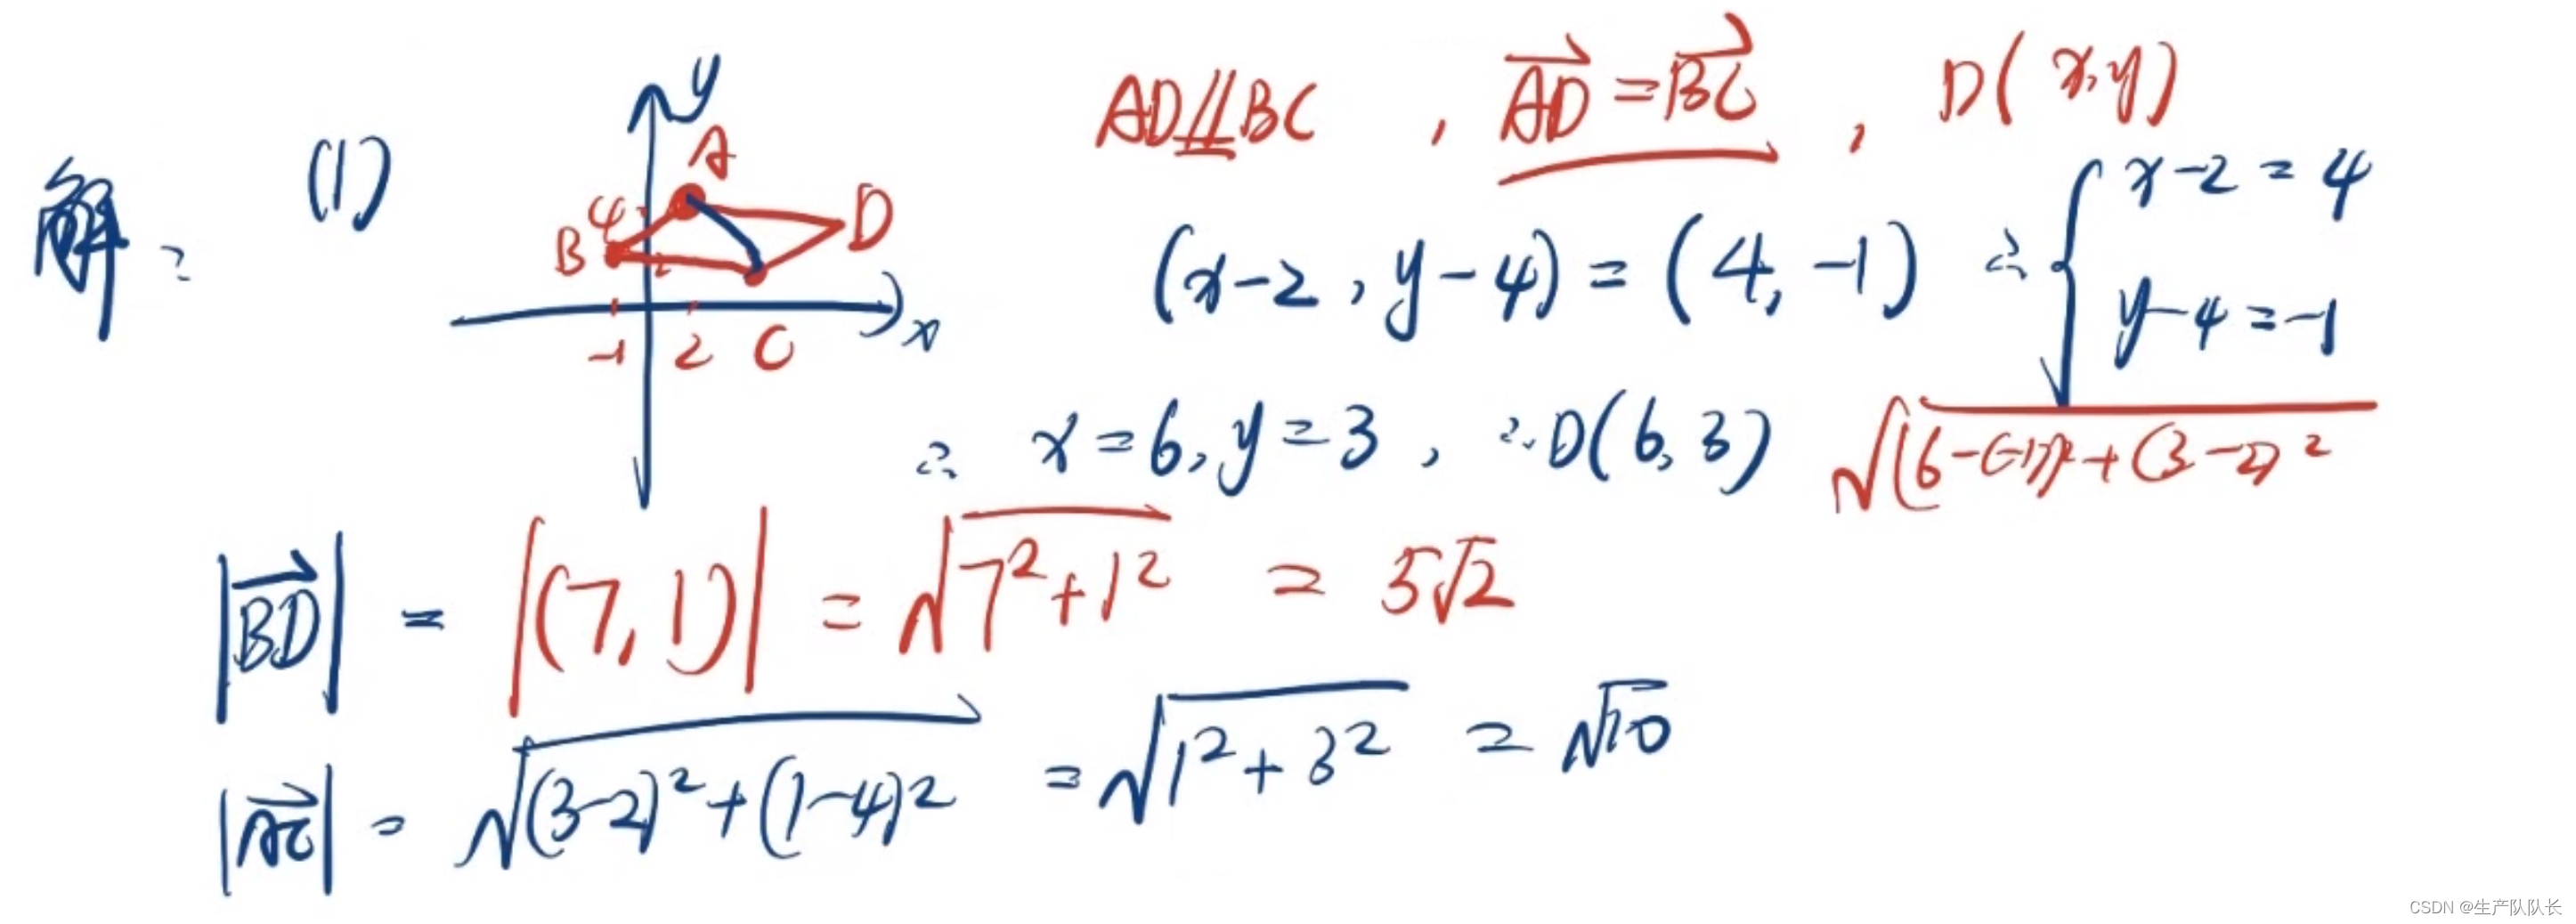 解: (1)
y
A
4
B
D
2
-1 2 C
x
AD∥BC , \overrightarrow{AD}=\overrightarrow{BC} , D(x,y)
(x-2, y-4)=(4,-1) ∴ { x-2=4
y-4=-1
∴ x=6, y=3, ∴D(6,3) √((6-(-1))²+(3-2)²)
|\overrightarrow{BD}| = |(7,1)| = √(7²+1²) = 5√2
|\overrightarrow{AC}| = √((3-2)²+(1-4)²) = √(1²+3²) = √10
CSDN @生产队队长